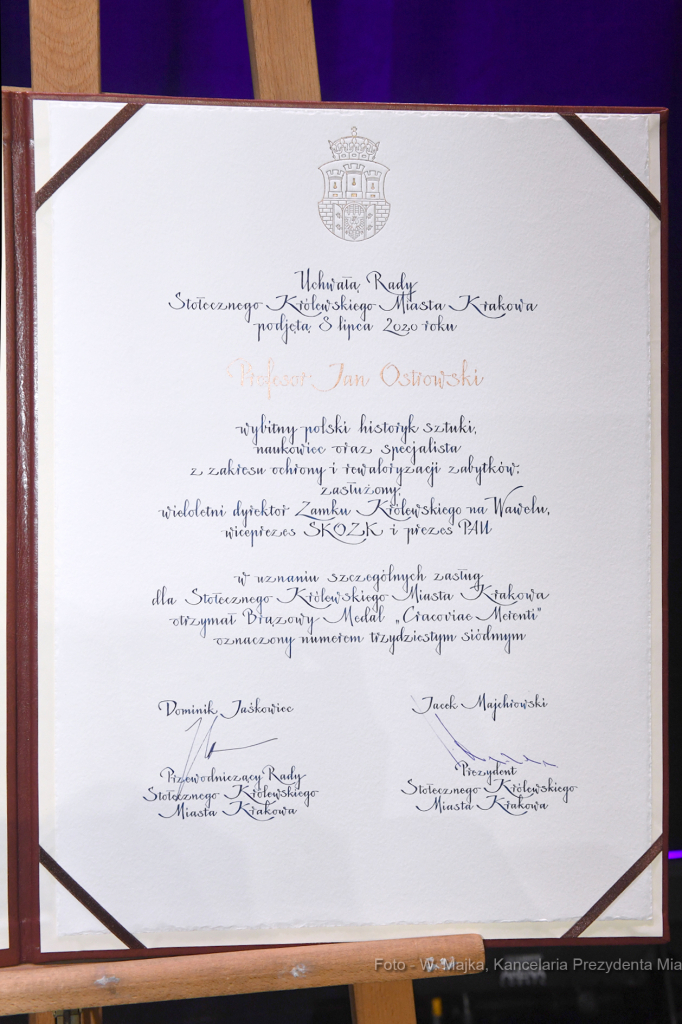 Uchwałą Rady
Stołecznego Królewskiego Miasta Krakowa
podjętą 8 lipca 2020 roku
Profesor Jan Ostrowski
wybitny polski historyk sztuki,
naukowiec oraz specjalista
z zakresu ochrony i rewaloryzacji zabytków;
zasłużony,
wieloletni dyrektor Zamku Królewskiego na Wawelu,
wiceprezes SKOZK i prezes PAU
w uznaniu szczególnych zasług
dla Stołecznego Królewskiego Miasta Krakowa
otrzymał Brązowy Medal „Cracoviae Merenti”
oznaczony numerem trzydziestym siódmym
Dominik Jaśkowiec
Przewodniczący Rady
Stołecznego Królewskiego
Miasta Krakowa
Jacek Majchrowski
Prezydent
Stołecznego Królewskiego
Miasta Krakowa
Foto - W. Majka, Kancelaria Prezydenta Mia